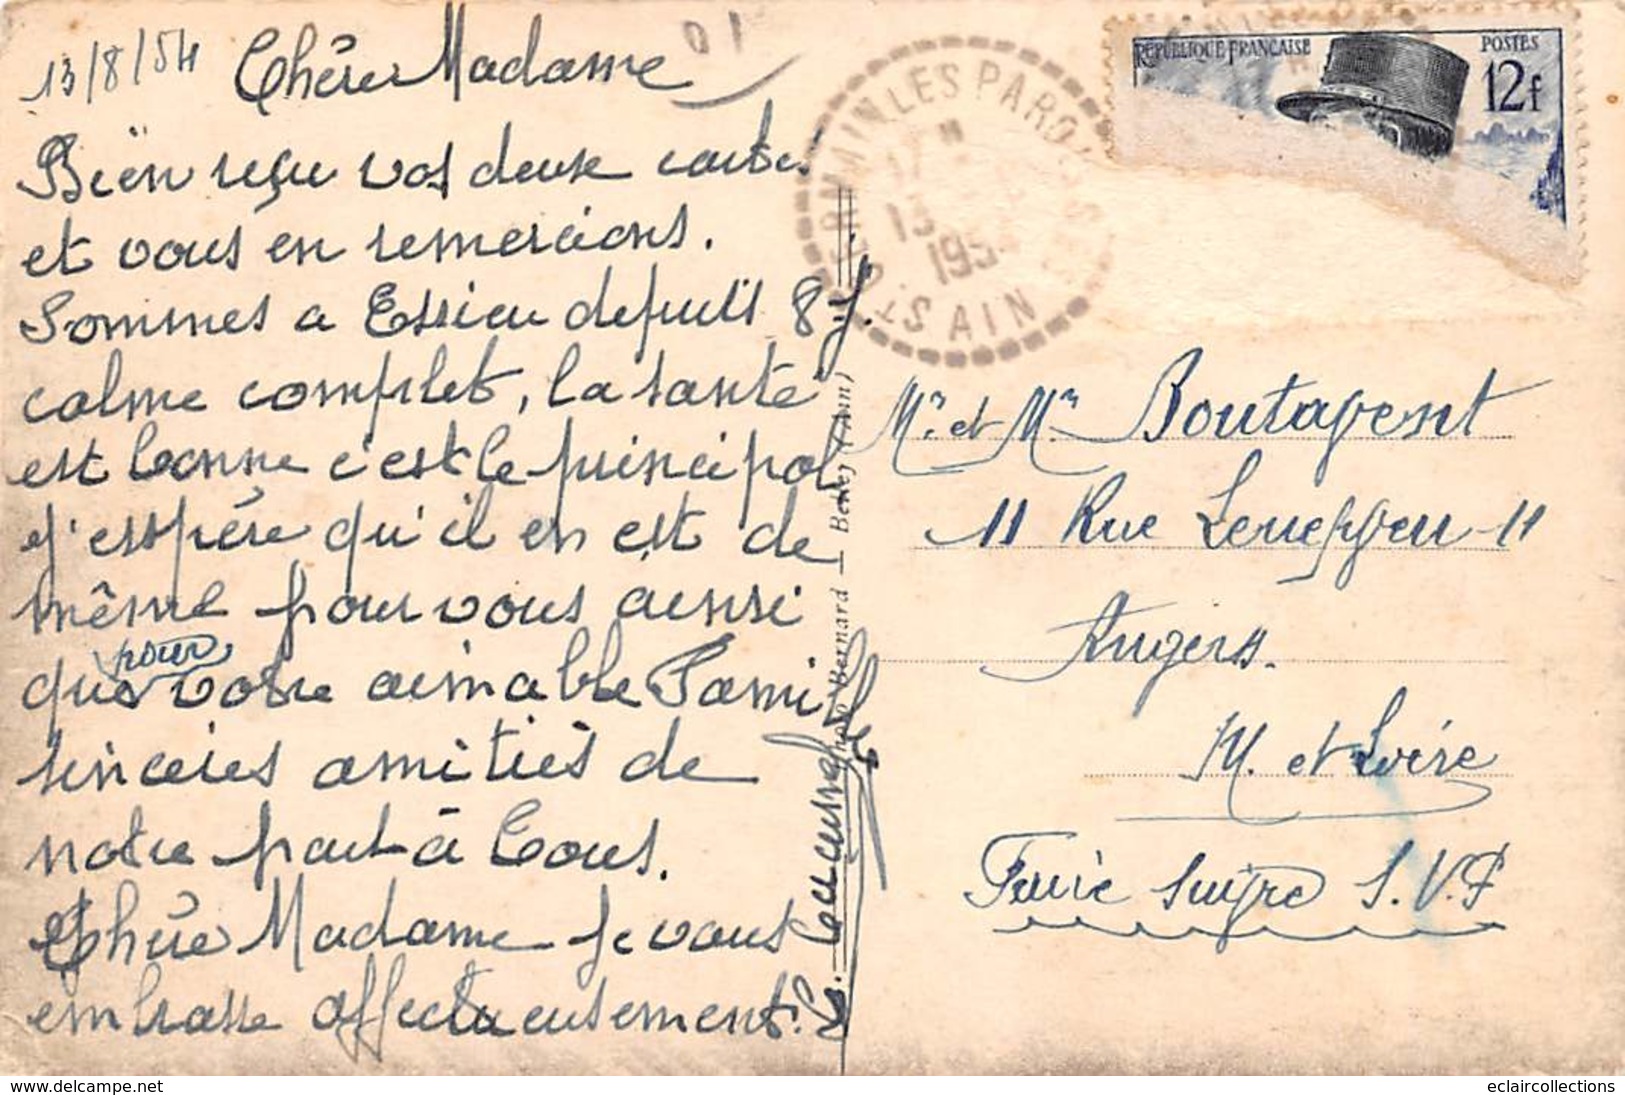 13/8/54 Chère Madame
Bien reçu vos deux cartes
et vous en remercions.
Sommes a Essieu depuis 8 j.
calme complet, la santé
est bonne c'est le principal
j'espère qu'il en est de
même pour vous ainsi
que pour votre aimable Famille
sincères amitiés de
notre part à Tous.
Chère Madame je vous
embrasse affectueusement.
RÉPUBLIQUE FRANÇAISE
POSTES
12f
ST GERMAIN LES PAROISSES
17 H
13
1954
AIN
Photo Bernard — Belley (Ain)
Mr et Mm Boutapent
11 Rue 11
Angers.
M. et Loire
Faire Suivre S.V.P
eclaircollections
www.delcampe.net